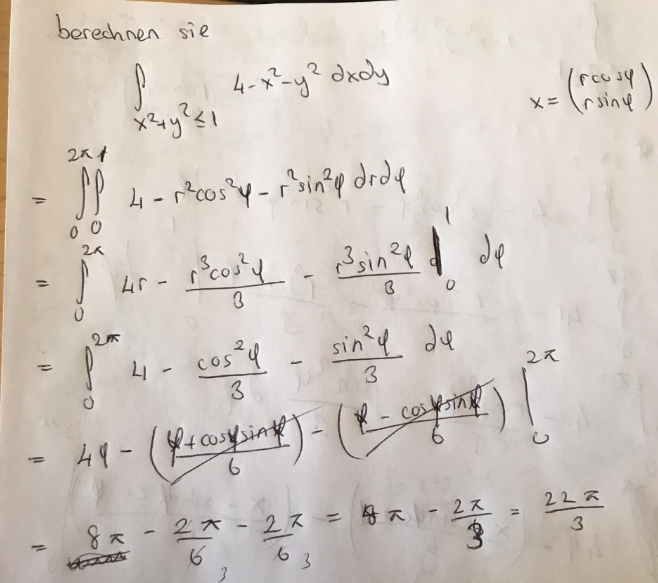 berechnen sie
∫ 4-x²-y² dxdy
x²+y²≤1
x = (rcosφ
rsinφ)
= ∫₀^2π ∫₀^1 4 - r²cos²φ - r²sin²φ drdφ
= ∫₀^2π 4r - r³cos²φ/3 - r³sin²φ/3 |₀^1 dφ
= ∫₀^2π 4 - cos²φ/3 - sin²φ/3 dφ
= 4φ - (φ+cosφsinφ)/6 - (φ-cosφsinφ)/6 |₀^2π
= 8π - 2π/6 - 2π/6 = 8π - 2π/3 = 22π/3
3 3